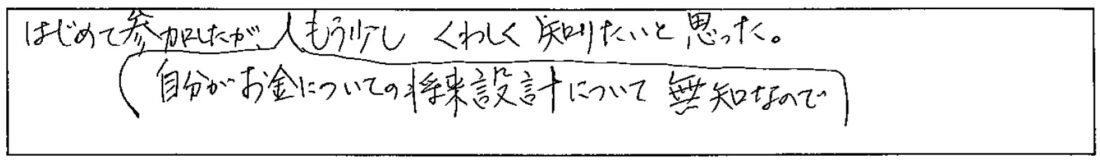 はじめて参加したが、もう少し くわしく 知りたいと思った。
(自分がお金についての将来設計について 無知なので)